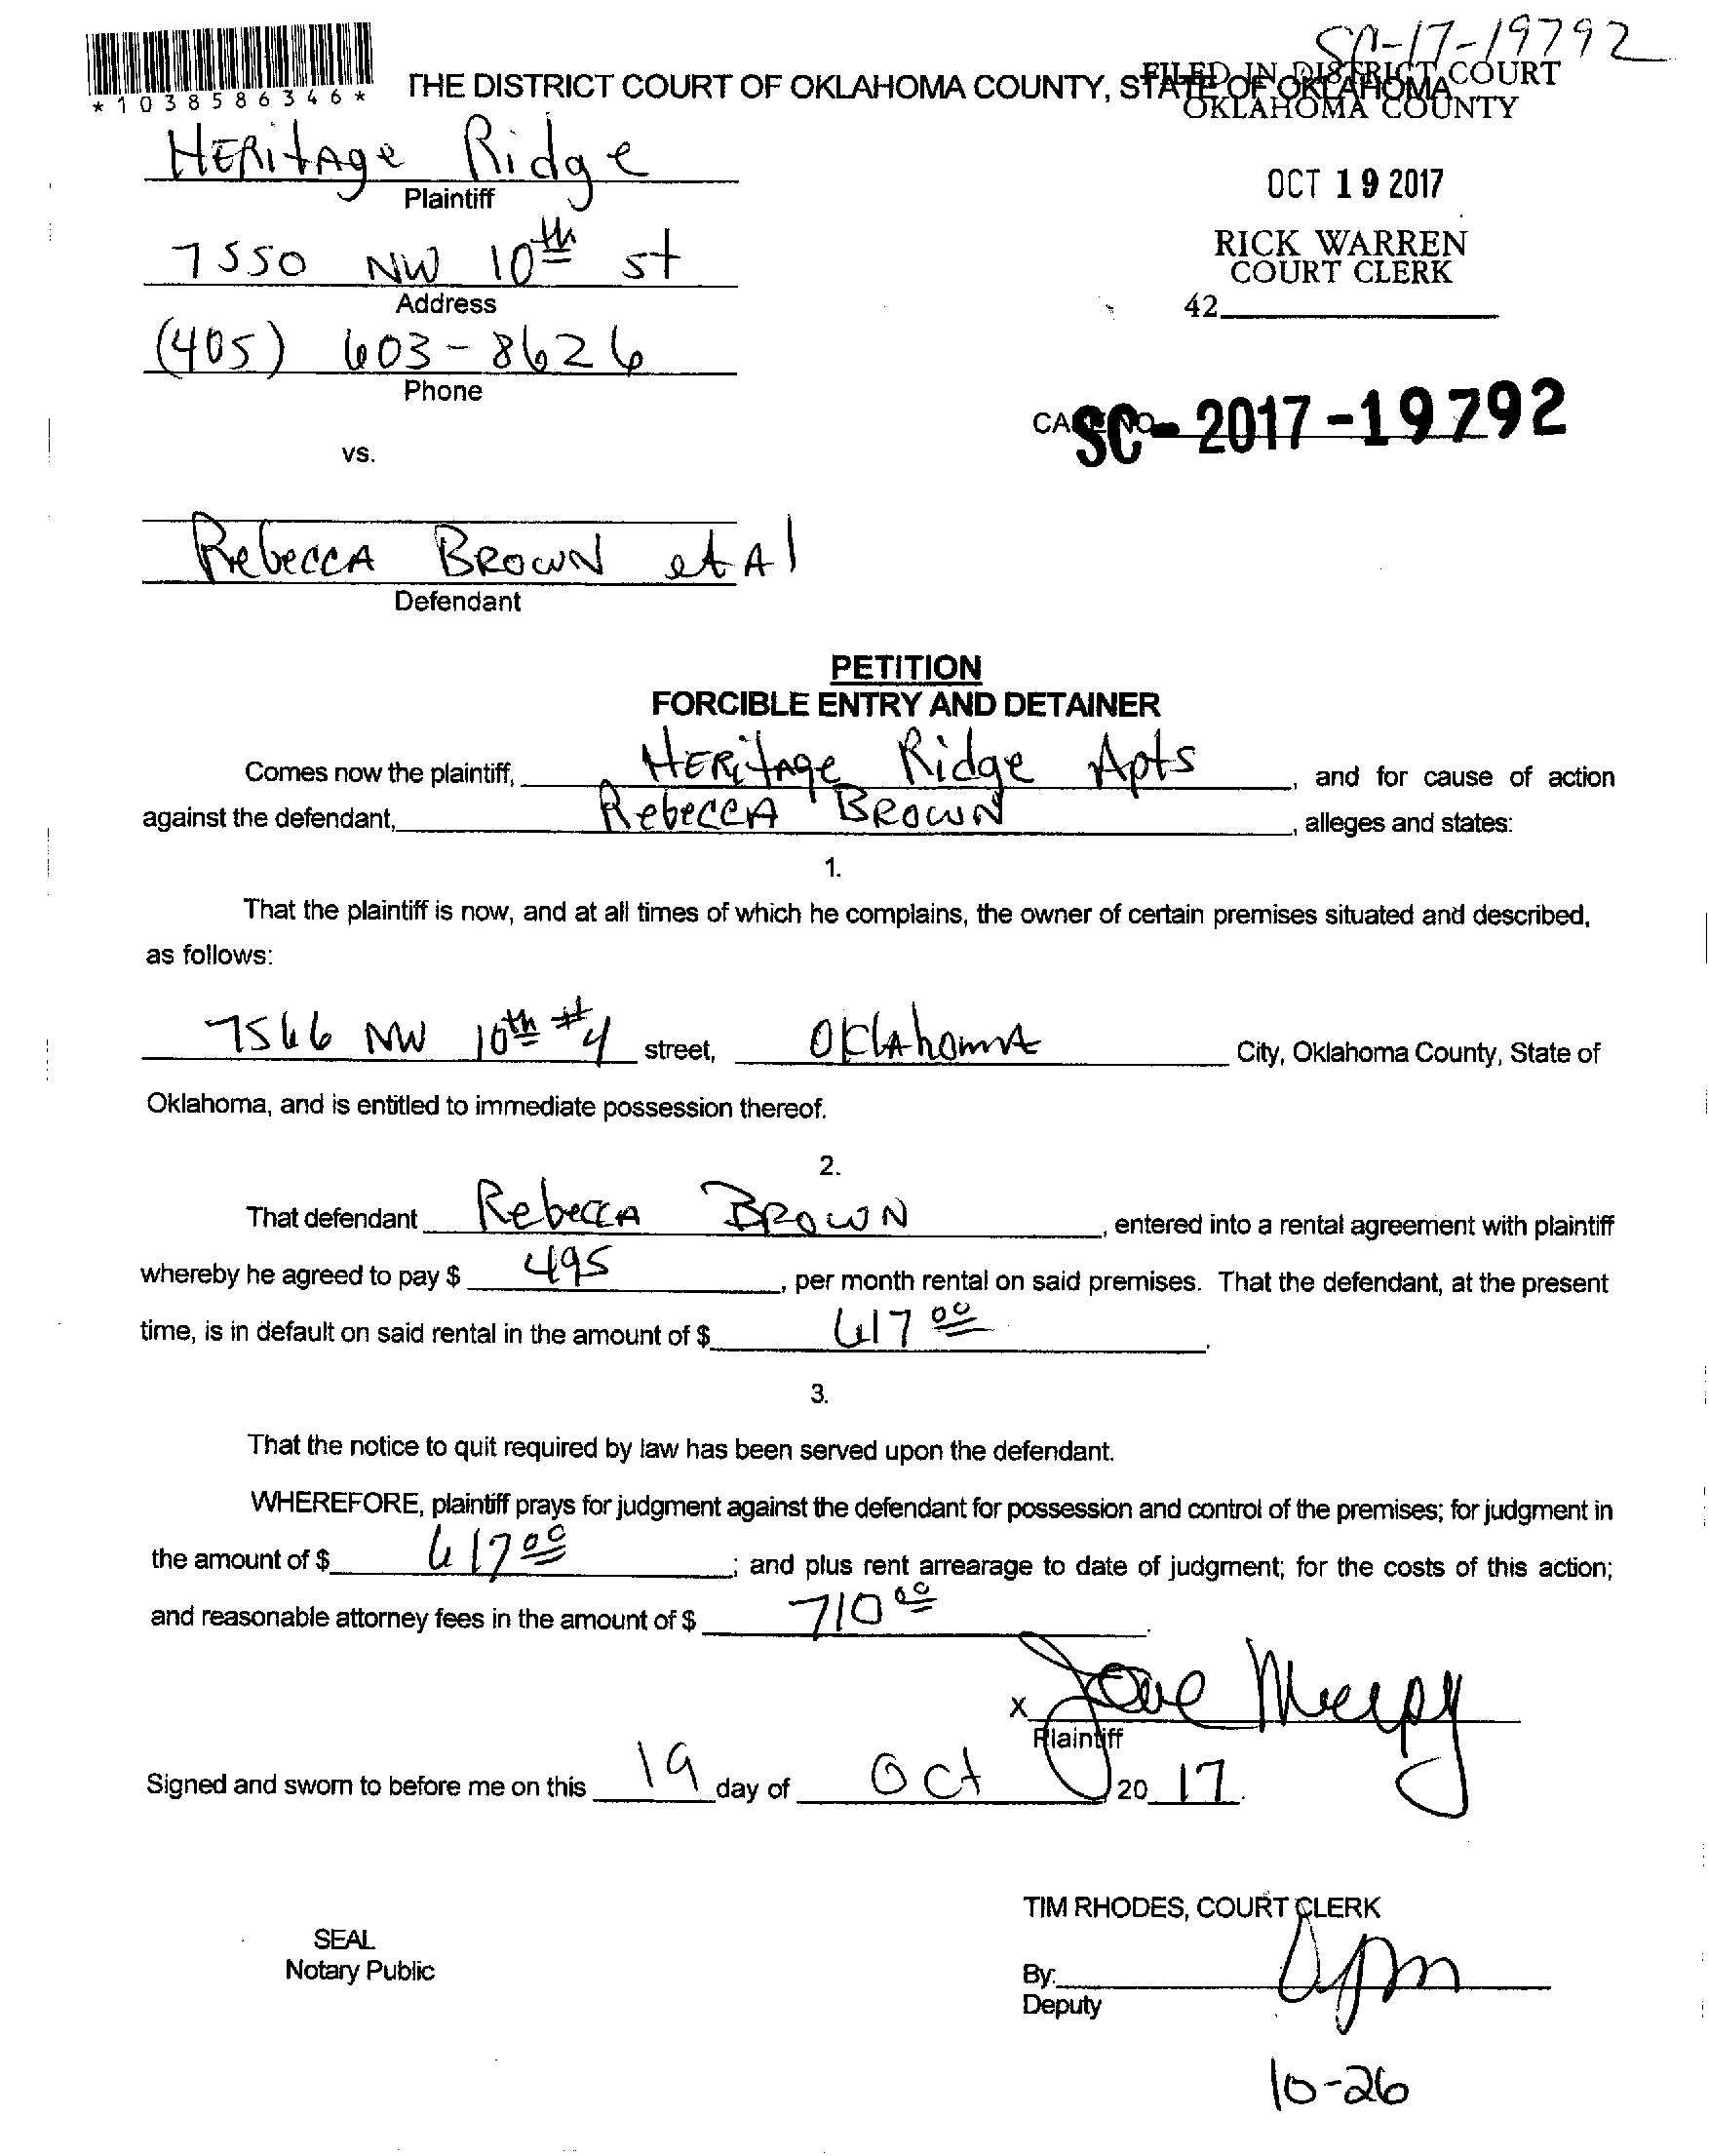 SC-17-19792
*1038586346*
THE DISTRICT COURT OF OKLAHOMA COUNTY, STATE OF OKLAHOMA
FILED IN DISTRICT COURT
OKLAHOMA COUNTY
HERitAge Ridge
Plaintiff
OCT 19 2017
7550 NW 10th st
Address
RICK WARREN
COURT CLERK
42
(405) 603-8626
Phone
SC-2017-19792
vs.
RebeccA BROWN et Al
Defendant
PETITION
FORCIBLE ENTRY AND DETAINER
Comes now the plaintiff, HERitAge Ridge Apts, and for cause of action
against the defendant, RebeccA BROWN, alleges and states:
1.
That the plaintiff is now, and at all times of which he complains, the owner of certain premises situated and described,
as follows:
7566 NW 10th #4 street, OklAhomA City, Oklahoma County, State of
Oklahoma, and is entitled to immediate possession thereof.
2.
That defendant RebeccA BROWN, entered into a rental agreement with plaintiff
whereby he agreed to pay $ 495, per month rental on said premises. That the defendant, at the present
time, is in default on said rental in the amount of $ 617 00.
3.
That the notice to quit required by law has been served upon the defendant.
WHEREFORE, plaintiff prays for judgment against the defendant for possession and control of the premises; for judgment in
the amount of $ 617 00; and plus rent arrearage to date of judgment; for the costs of this action;
and reasonable attorney fees in the amount of $ 710 00.
X
Plaintiff
Signed and sworn to before me on this 19 day of Oct 20 17.
TIM RHODES, COURT CLERK
SEAL
Notary Public
By:
Deputy
10-26